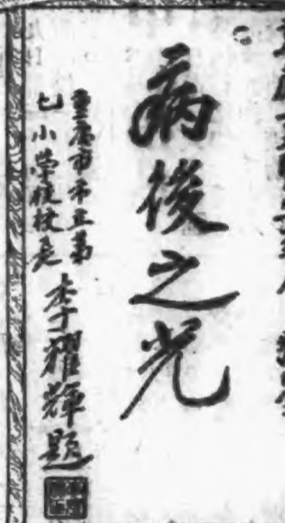 病後之光
重慶市市立第
七小學校校長
李耀輝題